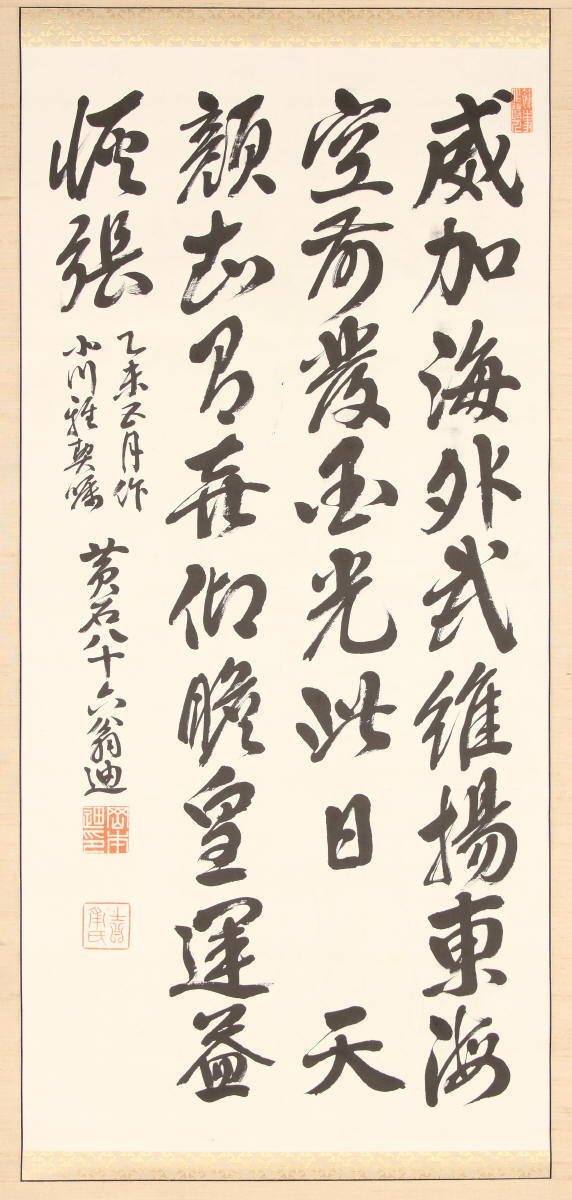 威加海外武維揚東海
空前發国光此日 天
顔知有喜仰瞻皇運益
恢張
乙未正月作
小川雅契嘱
黄石八十六翁迪
岡本迪印